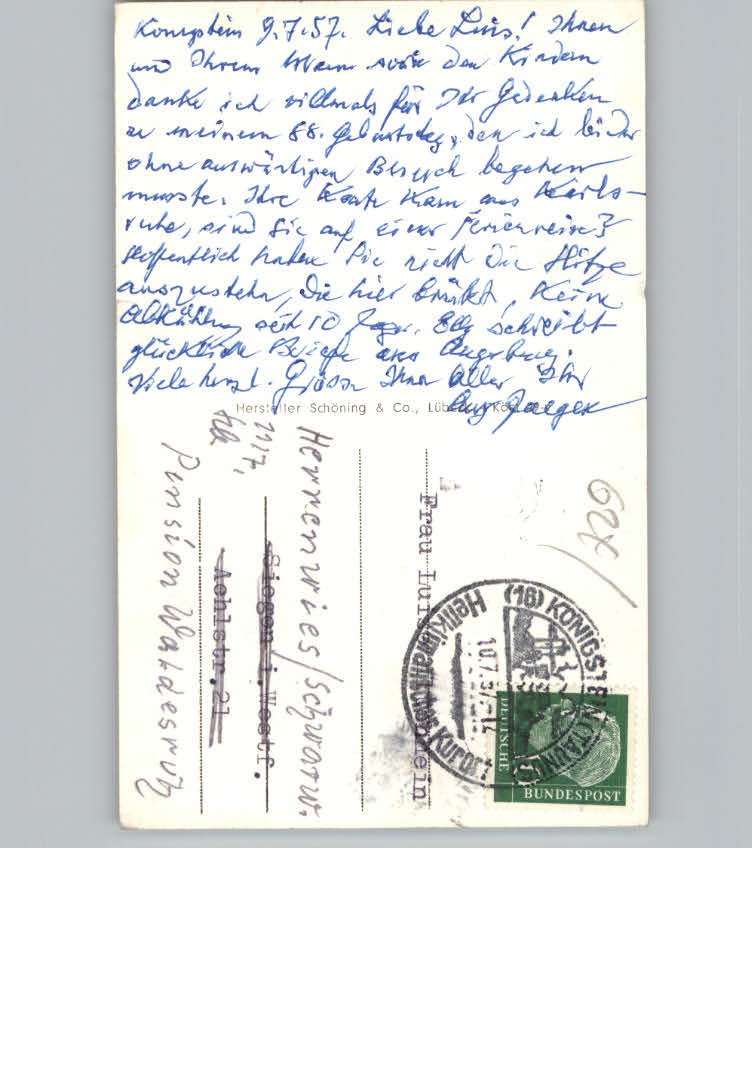 Königstein 9.7.57. Liebe Luis! Ihnen
und Ihrem Mann sowie den Kindern
danke ich vielmals für Ihr Gedenken
zu meinem 88. Geburtstag, den ich leider
ohne auswärtigen Besuch begehen
musste. Ihre Karte kam aus Karls-
ruhe, sind Sie auf einer Ferienreise?
Hoffentlich haben Sie nicht die Hitze
auszustehn, die hier brütet. Keine
Abkühlung seit 10 Tagen. Elly schreibt
glückliche Briefe aus Augsburg.
Viele herzl. Grüsse Ihnen Allen Ihr
Aug Jaeger
Hersteller Schöning & Co., Lübeck
Frau Luis
lein
Herrenwies/Schwarzw.
11/7.
Siegen i. Westf.
Achlstr. 21
Pension Waldesruh
62x/
(16) KÖNIGSTEIN (TAUNUS)
Heilklimatischer Kurort
10.7.57-12
DEUTSCHE
BUNDESPOST